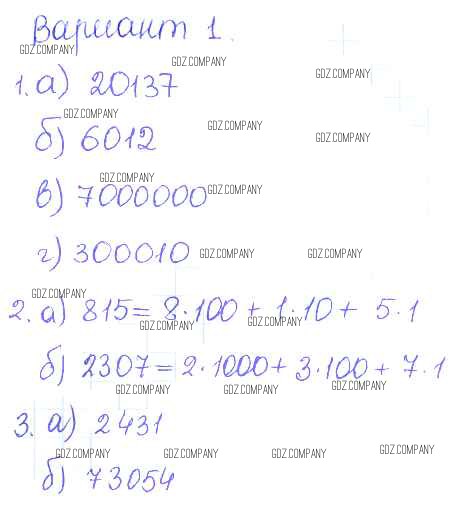 Вариант 1.
GDZ.COMPANY
GDZ.COMPANY
GDZ.COMPANY
1. а) 20137
GDZ.COMPANY
GDZ.COMPANY
GDZ.COMPANY
б) 6012
GDZ.COMPANY
GDZ.COMPANY
в) 7000000
г) 300010 GDZ.COMPANY GDZ.COMPANY
GDZ.COMPANY
2. а) 815 = 8·100 + 1·10 + 5·1
GDZ.COMPANY GDZ.COMPANY
б) 2307 = 2·1000 + 3·100 + 7·1
GDZ.COMPANY GDZ.COMPANY GDZ.COMPANY
3. а) 2431
GDZ.COMPANY GDZ.COMPANY GDZ.COMPANY GDZ.COMPANY
б) 73054